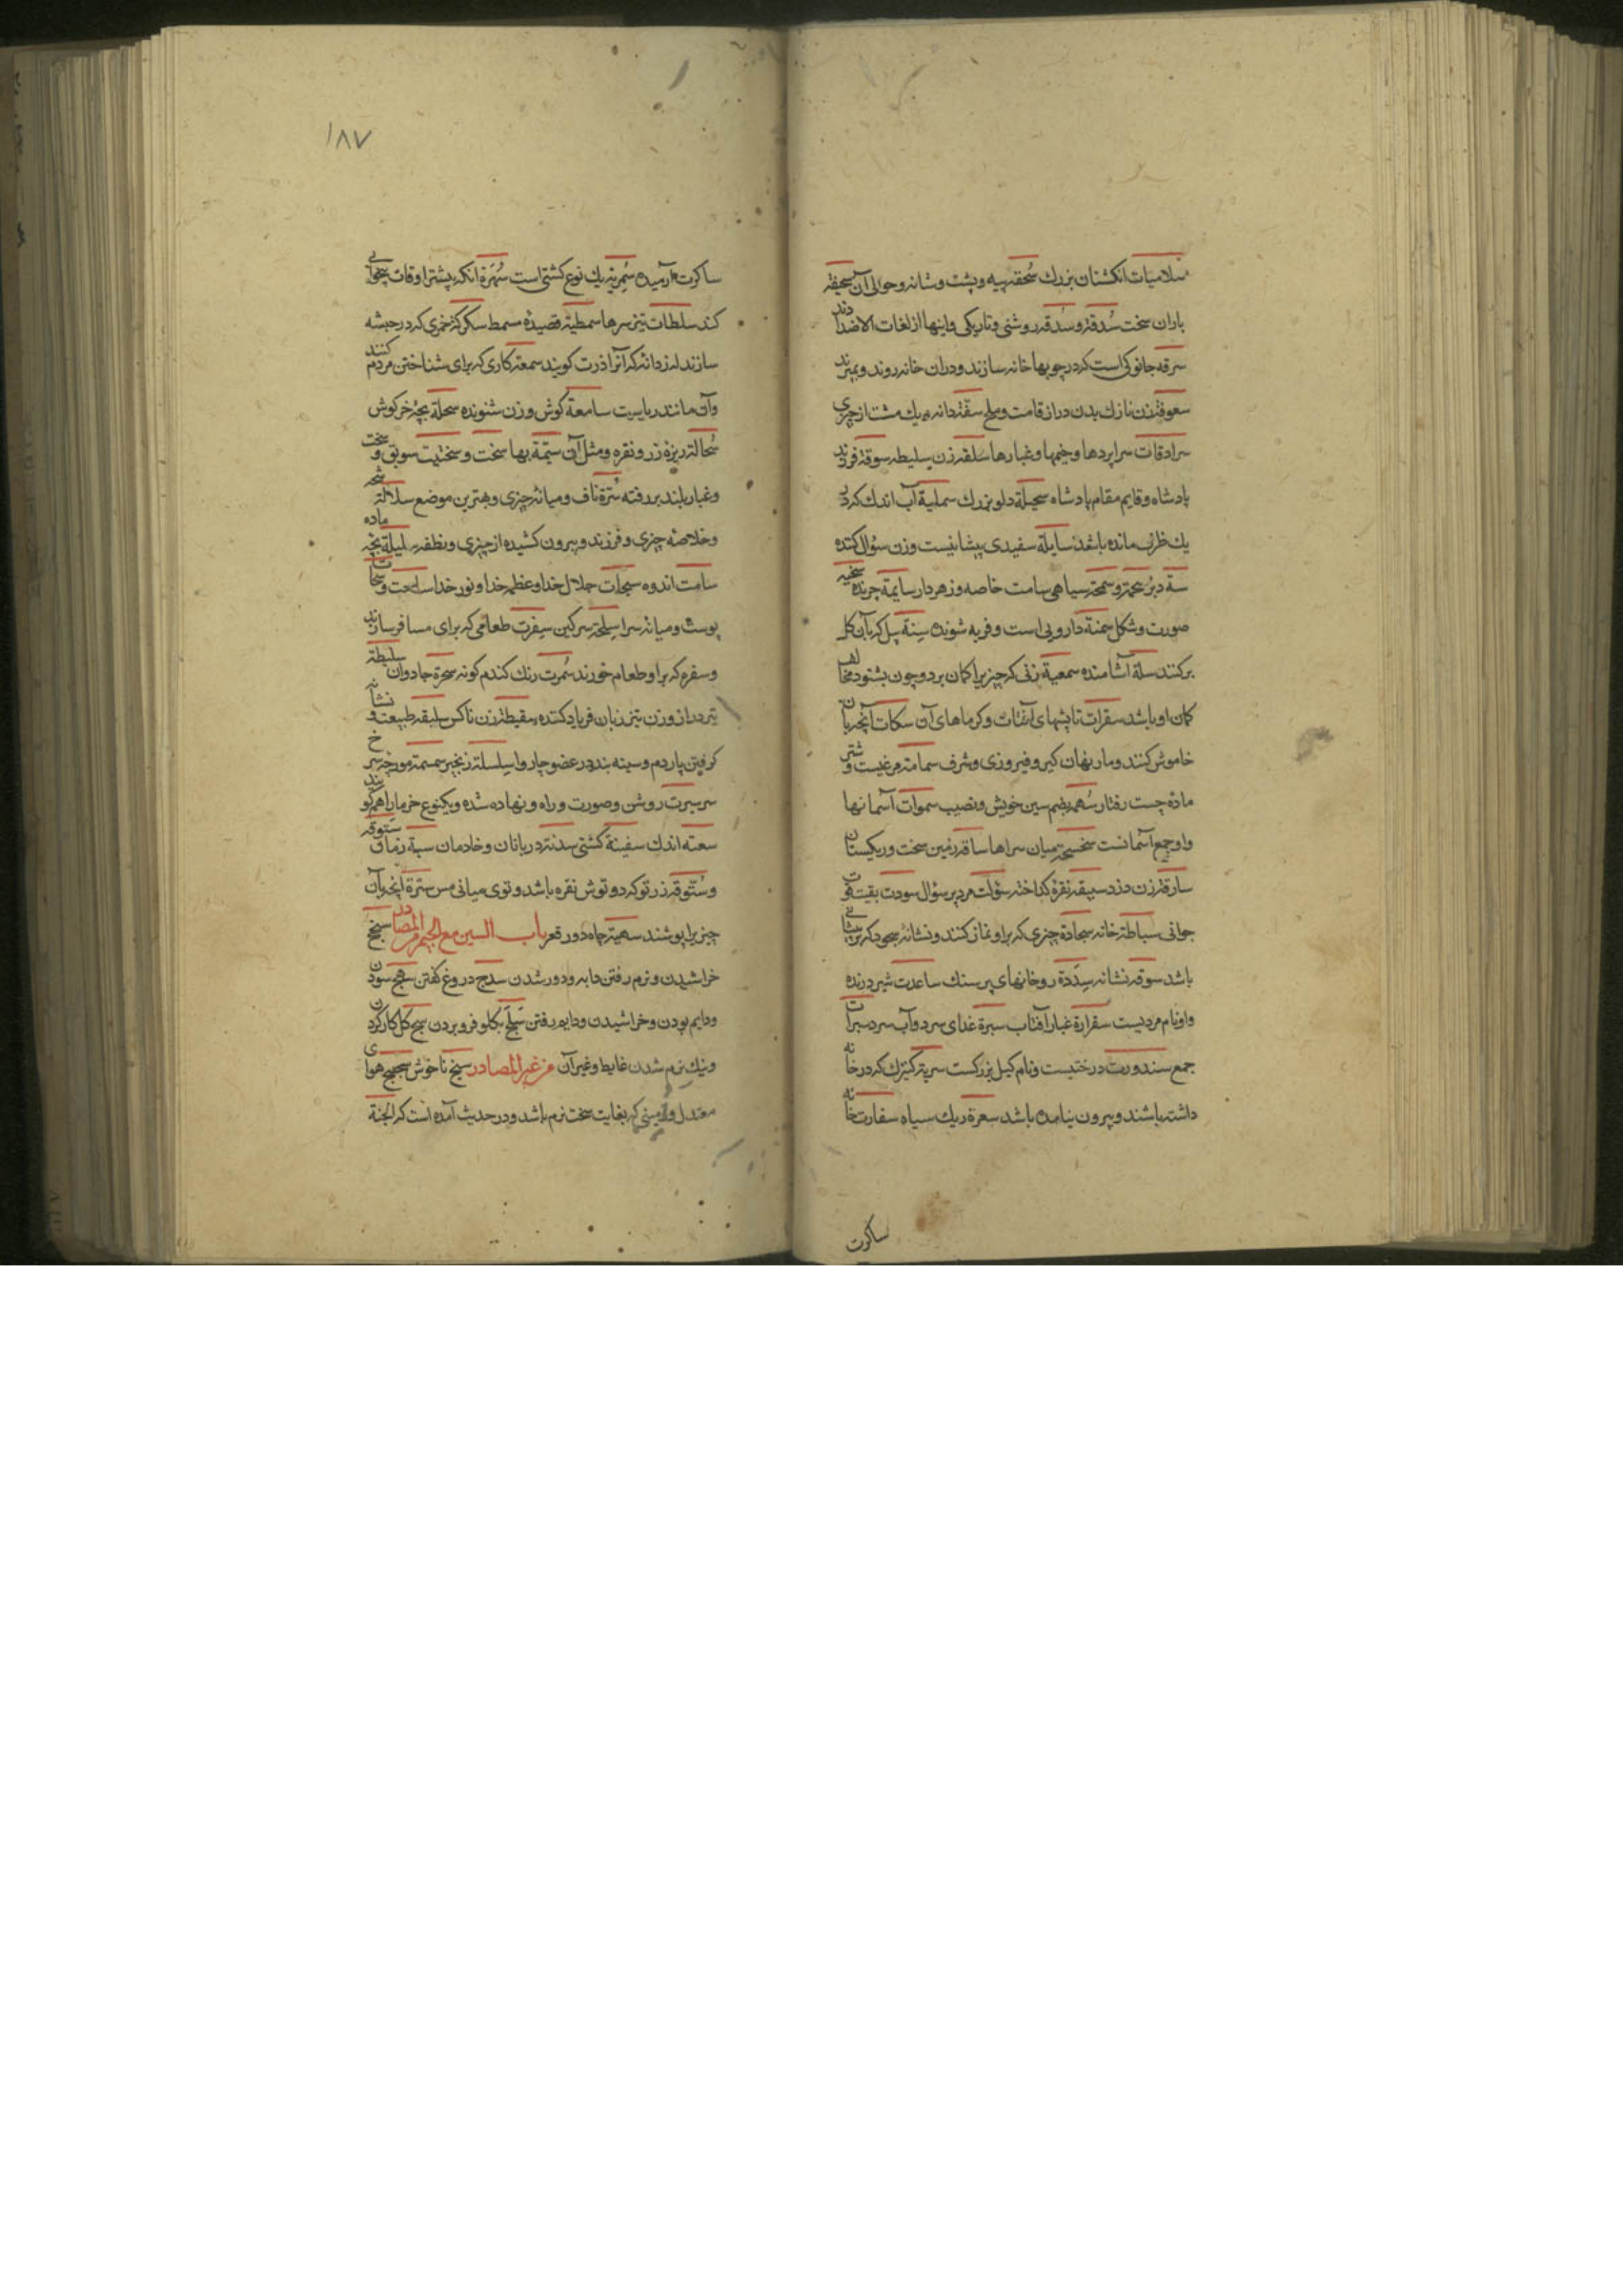 سلامیات انکشتان بزرك سُحقه پیه و پشت و شانه و حوالی آن سحیفه
باران سخت سُدقة و سَدقه روشنی و تاریکی و اینها از لغات الاضدادند
سرقه جانورکی است که در چوبها خانه سازند و دران خانه روند و بمیرند
سعوقة زن نازك بدن دراز قامت و ملخ سفّته دانه و یك مشت از چیزی
سرادقات سراپردها و خیمها و غبارها سلقه زن سلیطه سوقة فروند
پادشاه و قایم مقام پادشاه سحیلة دلو بزرك سملیة آب اندك که در
یك ظرف مانده باشد سایلة سفیدی پیشانیست و زن سؤال کننده
سة دبر سُحمة و سحمة سیاهی سامت خاصه و زهردار سایمة چرنده سخیه
صورت و شکل سمنة دارویی است و فربه شونده سِنة پل که بآن کل
برکنند سلة آشامنده سمعیة زنی که چیزیرا کمان برد و چون بشنود مخالف
کمان او باشد سقرات تابشهای آفتاب و کرماهای آن سکات آنچه بآن
خاموش کنند و مار نهان کیر و فیروزی و شرف سمامة مرغیست و شتر
مادۀ چست رفتار سُهمة بضم سین خویش و نصیب سموات آسمانها
و او جمع آسمانست سخسحة میان سراها ساقه زمین سخت و ریکستان
سارقة زن دزد سبیقه نقرۀ کداخته سؤلت مرد پر سؤال سودت بقیت قوت
جوانی سباطة خانه سجادة چیزی که بر او نماز کنند و نشانۀ سجود که در پیشانی
باشد سوقه نشانه سِدَدة روخانهای پر سنك ساعدت شیر درنده
و او نام مردیست سقرارة غبار آفتاب سبرة غدای سرد و آب سرد سبرات
جمع سندورت درختیست و نام کیل بزرکست سریة کنیزك که در خانه
داشته باشند و بیرون نیامده باشد سعرة ریك سیاه سفارت خانه
ساکرت
١٨٧
ساکرت آرمیده سُمریة یك نوع کشتی است سُهَرة انکه بیشتر اوقات بیخوابی
کند سلطات تیز سرها سمطیة قصیدۀ مسمط سکرکة خمری که در حبشه
سازند از دانۀ که آنرا ذرت کویند سمعة کاری که برای شناختن مردم کنند
و آن مانند ریاست سامعة کوش و زن شنونده سحلة بچۀ خرکوش
سُحالة ریزۀ زر و نقره و مثل آن سیّمة بها سخت و سختیت سویق و سخت
و غبار بلند بر رفته سُترة ناف و میانۀ چیزی و بهترین موضع سلالة
و خلاصۀ چیزی و فرزند و بیرون کشیده از چیزی و نطفه سلیلة بچۀ ماده
سامت اندوه سبحات جلال خدا و عظمه خدا و نور خدا ساعت و سحات
پوست و میانۀ سرا سِلحة سرکین سِفرت طعامی که برای مسافر سازند
و سفره که بر او طعام خورند سُمرت رنك کندم کونه سحرة جادوان سلیطة
تیر دراز و زن تیز زبان فریاد کننده سقیطة زن ناکس سلیقه طبیعت و نشانه
کرفتن پاردم و سینه بند در عضو چاروا سِلسلة زنجیر سمسمة مورچه سرخ
سر سیرت روشن و صورت و راه و نهاده شده و یکنوع خرما را هم کویند
سعته اندك سفینة کشتی سدنة دربانان و خادمان سبة زمان سَتوقه
و سُتّوقه زر توکه دو توش نقره باشد و توی میانی مس سترة انچه بآن
چیزیرا پوشند سهیة چاه دور قعر باب السین مع الجیم من المصادر سبح
خراشیدن و نرم رفتن دابه و دور شدن سدج دروغ کفتن سهج سودن
و دایم بودن و خراشیدن و دایم رفتن سَلَج بکلو فرو بردن سج کل کار کردن
و نیك نرم شدن غایط و غیر آن من غیر المصادر سبج ناخوش سجسج هوای
معتدل و زمینی که بغایت سخت نرم باشد و در حدیث آمده است که الجنة